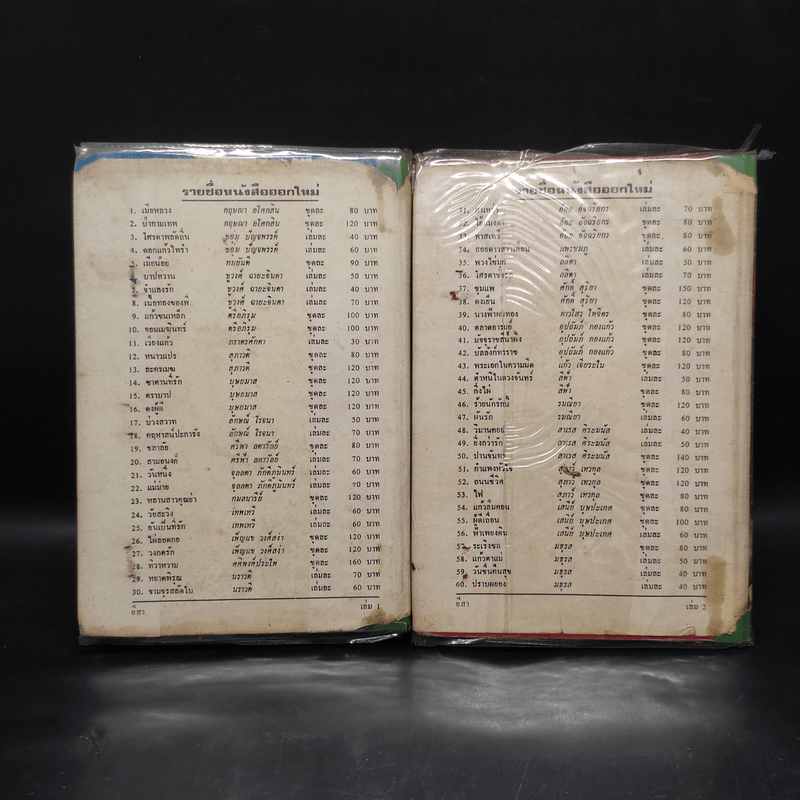 รายชื่อหนังสือออกใหม่
1. เมียหลวง กฤษณา อโศกสิน ชุดละ 80 บาท
2. น้ำกามเทพ กฤษณา อโศกสิน ชุดละ 120 บาท
3. โศรดาพลัดถิ่น ชอุ่ม ปัญจพรรค์ เล่มละ 40 บาท
4. ดอกแก้วไพรำ ชอุ่ม ปัญจพรรค์ เล่มละ 60 บาท
5. เมียน้อย ทมยันตี ชุดละ 90 บาท
6. บาปหวาน ชูวงศ์ ฉายะจินดา เล่มละ 50 บาท
7. จำเลยรัก ชูวงศ์ ฉายะจินดา เล่มละ 50 บาท
8. เนื้อทองของพี่ ชูวงศ์ ฉายะจินดา เล่มละ 70 บาท
9. แก้วขนเหล็ก ตรีอภิรุม ชุดละ 100 บาท
10. จอมเมฆินทร์ ตรีอภิรุม ชุดละ 100 บาท
11. เวียงแก้ว เล่มละ 30 บาท
12. หนาวแปร สุภาวดี ชุดละ 80 บาท
13. ละครเมฆ สุภาวดี ชุดละ 120 บาท
14. ซาตานที่รัก บุษยมาส ชุดละ 120 บาท
15. ตราบาป บุษยมาส ชุดละ 120 บาท
16. ดงผู้ดี บุษยมาส ชุดละ 120 บาท
17. บ่วงสวาท ลักษณ์ โรจนา เล่มละ 60 บาท
18. คฤหาสน์ปะการัง ลักษณ์ โรจนา เล่มละ 70 บาท
19. ชลาลัย ศรีฟ้า ลดาวัลย์ ชุดละ 80 บาท
20. สามอนงค์ ศรีฟ้า ลดาวัลย์ เล่มละ 70 บาท
21. วันหนึ่ง จุลลดา ภักดีภูมินทร์ เล่มละ 60 บาท
22. แม่ม่าย จุลลดา ภักดีภูมินทร์ เล่มละ 70 บาท
23. หลานสาวคุณย่า กมลนารีย์ ชุดละ 120 บาท
24. วัยสะวิง เทพเทวี เล่มละ 60 บาท
25. อันเป็นที่รัก เทพเทวี เล่มละ 60 บาท
26. ไผ่ลอดกอ เพ็ญแข วงศ์สง่า ชุดละ 120 บาท
27. วงกตรัก เพ็ญแข วงศ์สง่า ชุดละ 120 บาท
28. ทิวาหวาม ชุดละ 160 บาท
29. หยาดพิรุณ นราวดี เล่มละ 70 บาท
30. จามจุรสลัดใบ นราวดี เล่มละ 60 บาท
อีสา เล่ม 1
รายชื่อหนังสือออกใหม่
31. อ้อย อัจฉริยกร เล่มละ 70 บาท
32. อ้อย อัจฉริยกร ชุดละ 80 บาท
33. อ้อย อัจฉริยกร ชุดละ 80 บาท
34. แพรชมภู เล่มละ 60 บาท
35. พวงไข่มุก ลลิตา เล่มละ 50 บาท
36. ลลิตา เล่มละ 70 บาท
37. ขุมแพ ศักดิ์ สุริยา ชุดละ 150 บาท
38. ดงเย็น ศักดิ์ สุริยา ชุดละ 80 บาท
39. นางฟ้าผมทอง ดาวไสว ไพจิตร ชุดละ 80 บาท
40. ตลาดอารมณ์ อุปถัมภ์ กองแก้ว ชุดละ 120 บาท
41. มัจจุราชสีน้ำผึ้ง อุปถัมภ์ กองแก้ว ชุดละ 120 บาท
42. บัลลังก์ทรราช อุปถัมภ์ กองแก้ว ชุดละ 80 บาท
43. พระเอกในความมืด แก้ว เจียระไน ชุดละ 120 บาท
44. ตำหนิในดวงจันทร์ สีฟ้า เล่มละ 50 บาท
45. กิ่งไผ่ สีฟ้า ชุดละ 80 บาท
46. ร้ายนักรักนี้ รมณียา ชุดละ 120 บาท
47. ฝันรัก รมณียา เล่มละ 60 บาท
48. วิมานคอย สาเรศ ศิระมนัส เล่มละ 40 บาท
49. ยิ่งกว่ารัก สาเรศ ศิระมนัส เล่มละ 50 บาท
50. ม่านจันทร์ สาเรศ ศิระมนัส ชุดละ 140 บาท
51. กำแพงหัวใจ สุภาว์ เทวกุล ชุดละ 120 บาท
52. ถนนชีวิต สุภาว์ เทวกุล ชุดละ 120 บาท
53. ไฟ สุภาว์ เทวกุล ชุดละ 80 บาท
54. แก้วลืมคอน เสนีย์ บุษปะเกศ ชุดละ 80 บาท
55. ผู้ดีเถื่อน เสนีย์ บุษปะเกศ ชุดละ 100 บาท
56. ฟ้าเพียงดิน เสนีย์ บุษปะเกศ เล่มละ 60 บาท
57. ระเริงชล มธุรส ชุดละ 80 บาท
58. แก้วตาแม่ มธุรส เล่มละ 40 บาท
59. วันชื่นคืนสุข มธุรส เล่มละ 40 บาท
60. ปราบพยอง มธุรส เล่มละ 40 บาท
อีสา เล่ม 2